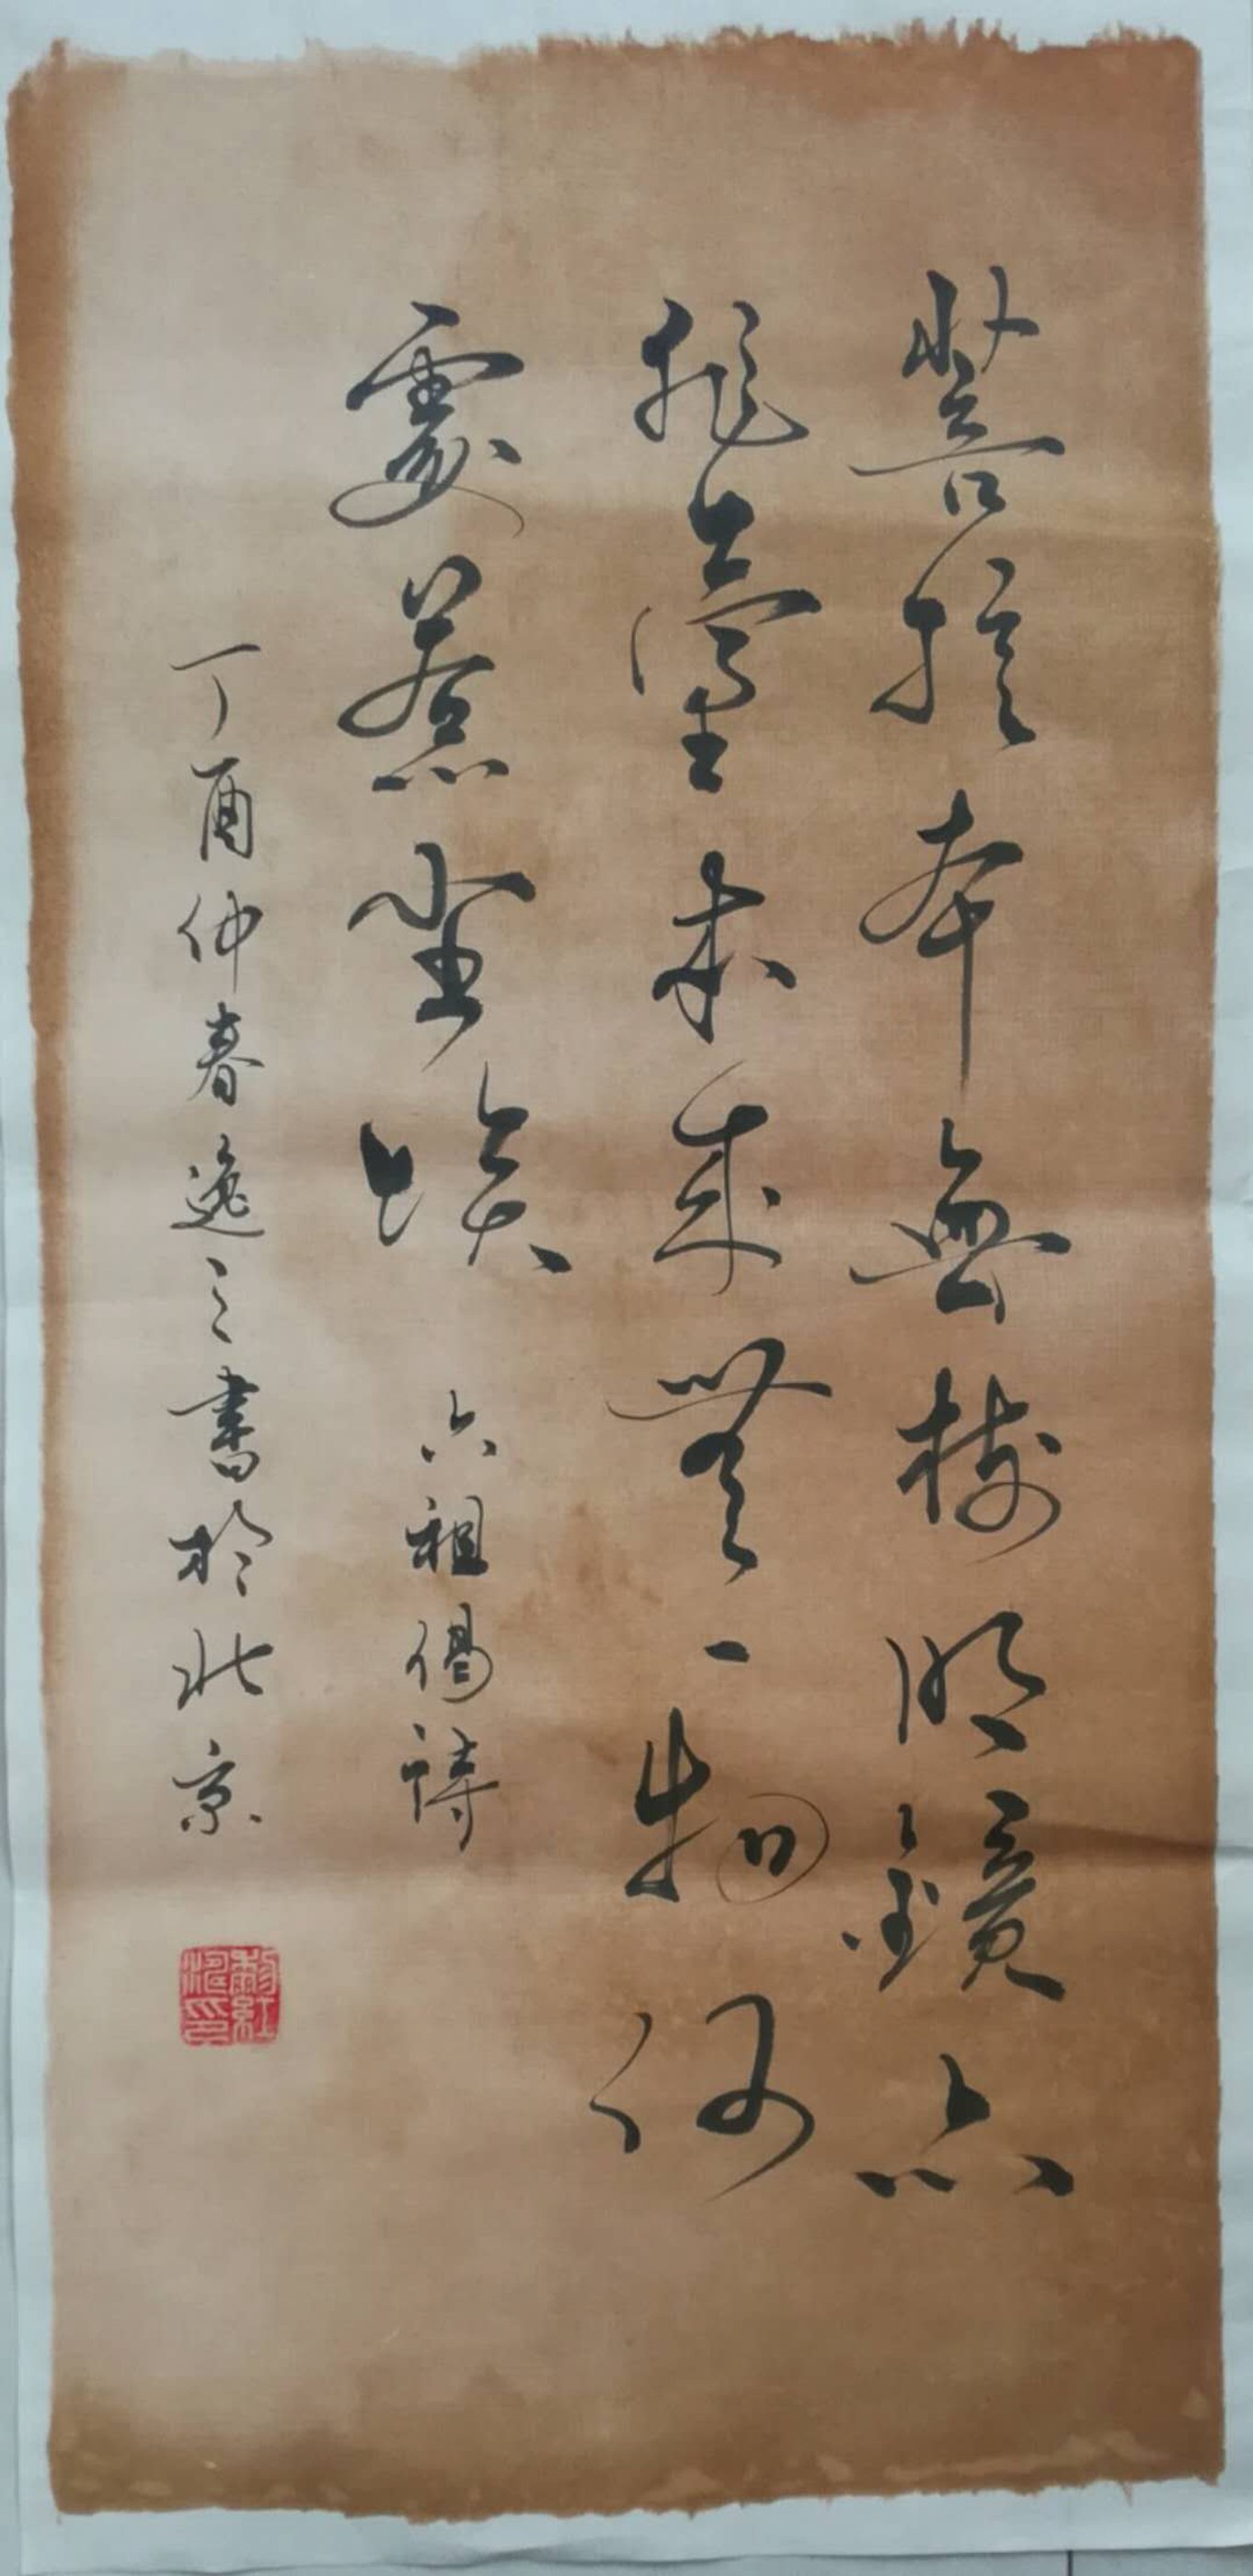 菩提本無樹明鏡亦
非臺本來無一物何
處惹塵埃 六祖偈詩
丁酉仲春逸之書於北京